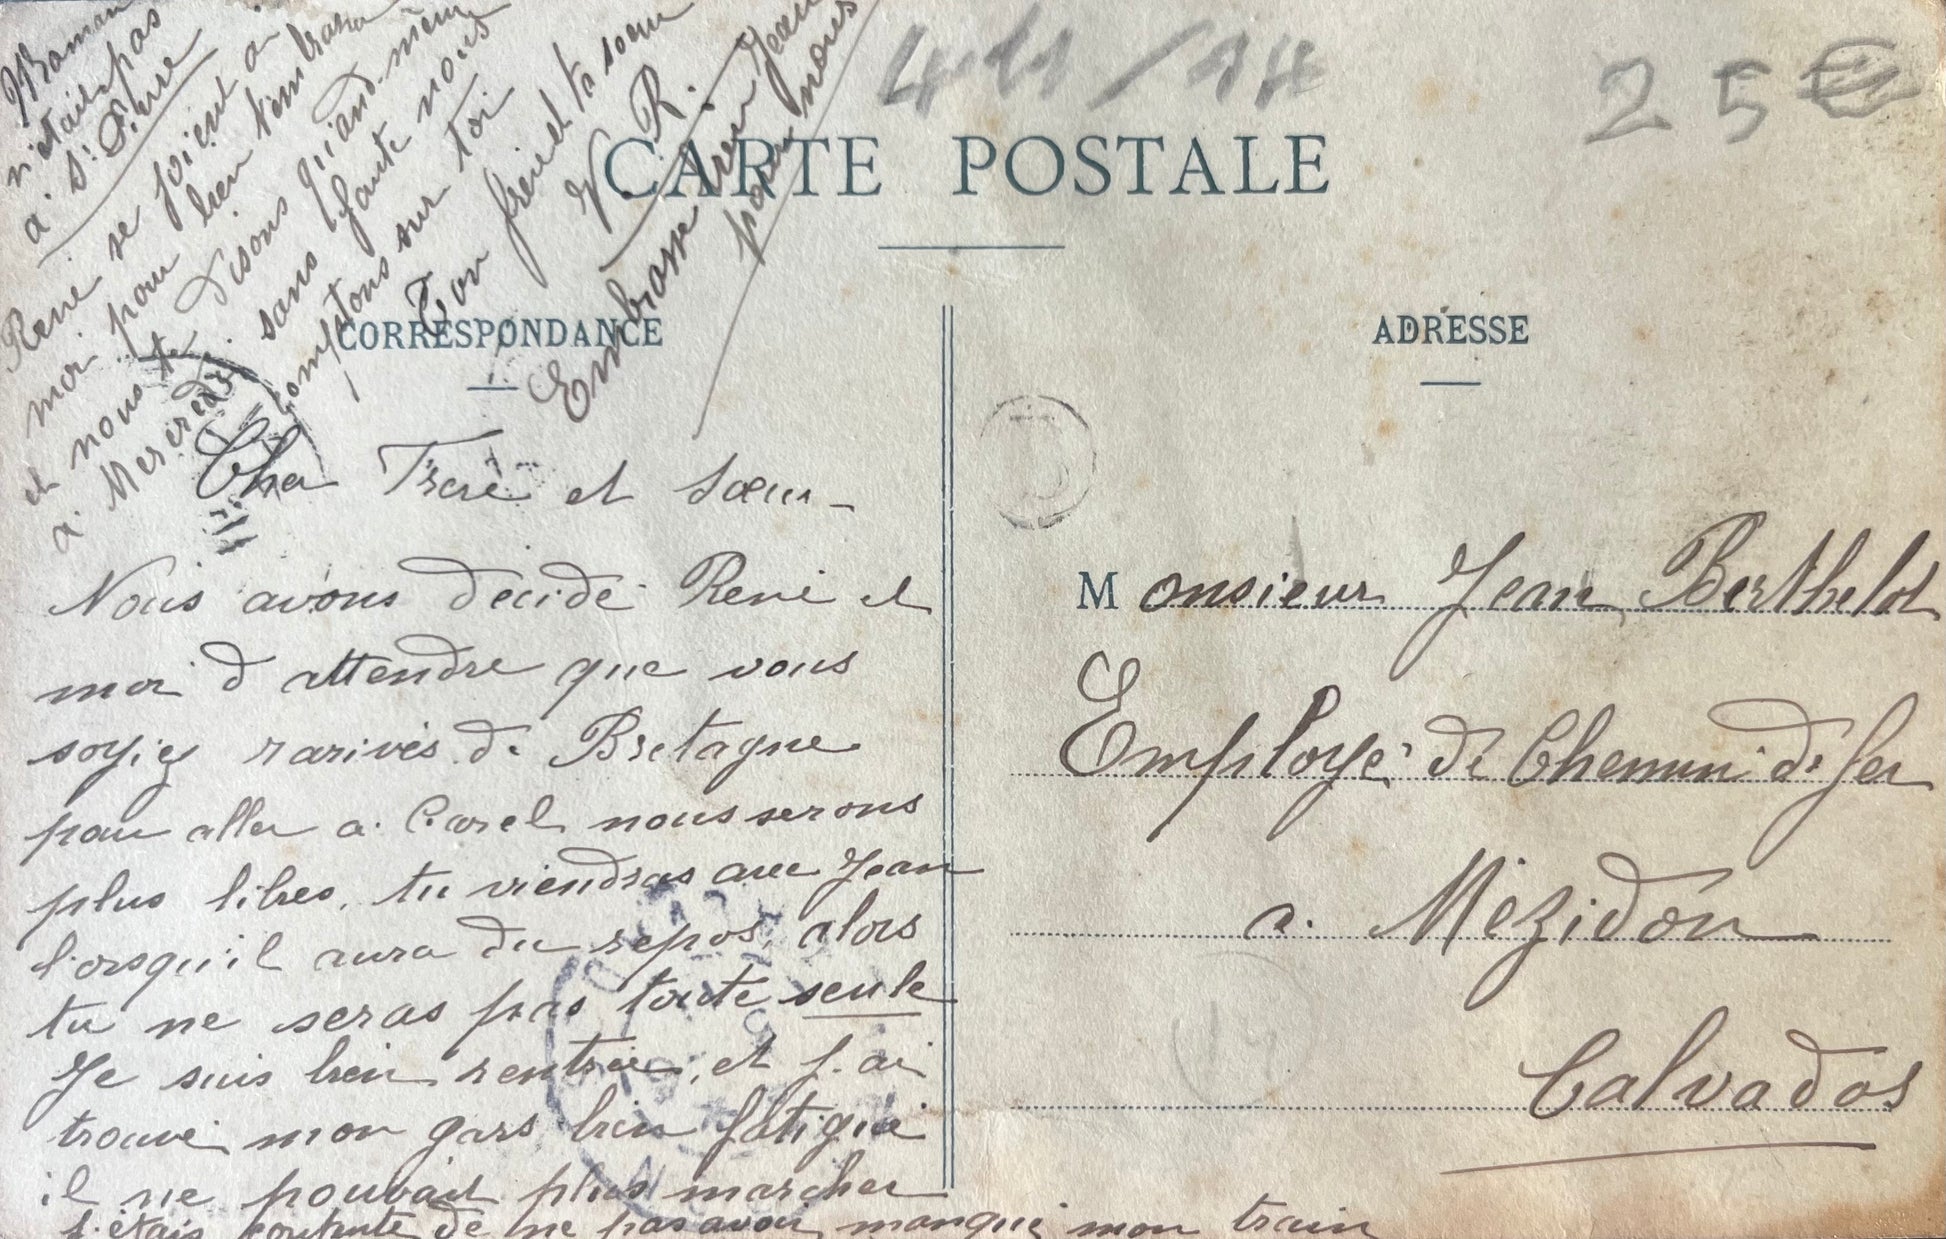 411/14
25€
CARTE POSTALE
CORRESPONDANCE
ADRESSE
Cher Frere et Sœur -
Nous avons décidé René et
moi d attendre que vous
soyiez rarivés de Bretagne
pour aller a Carel nous serons
plus libres, tu viendras avec Jean
lorsqu'il aura du repos, alors
tu ne seras pas toute seule
Je suis bien rentrée, et j.ai
trouvé mon gars bien fatigué
il ne pouvait plus marcher
j.étais contente de ne pas avoir manqué mon train
Maman
n'etait pas
a St Pierre
René se joient a
moi pour bien t'embrasser
et nous te disons quand-même
a Mercredi sans faute nous
comptons sur toi
Ton frere et ta soeur
V. R.
Embrasse bien Jean
pour nous
Monsieur Jean Berthelot
Employé de Chemin de fer
a Mézidon
Calvados